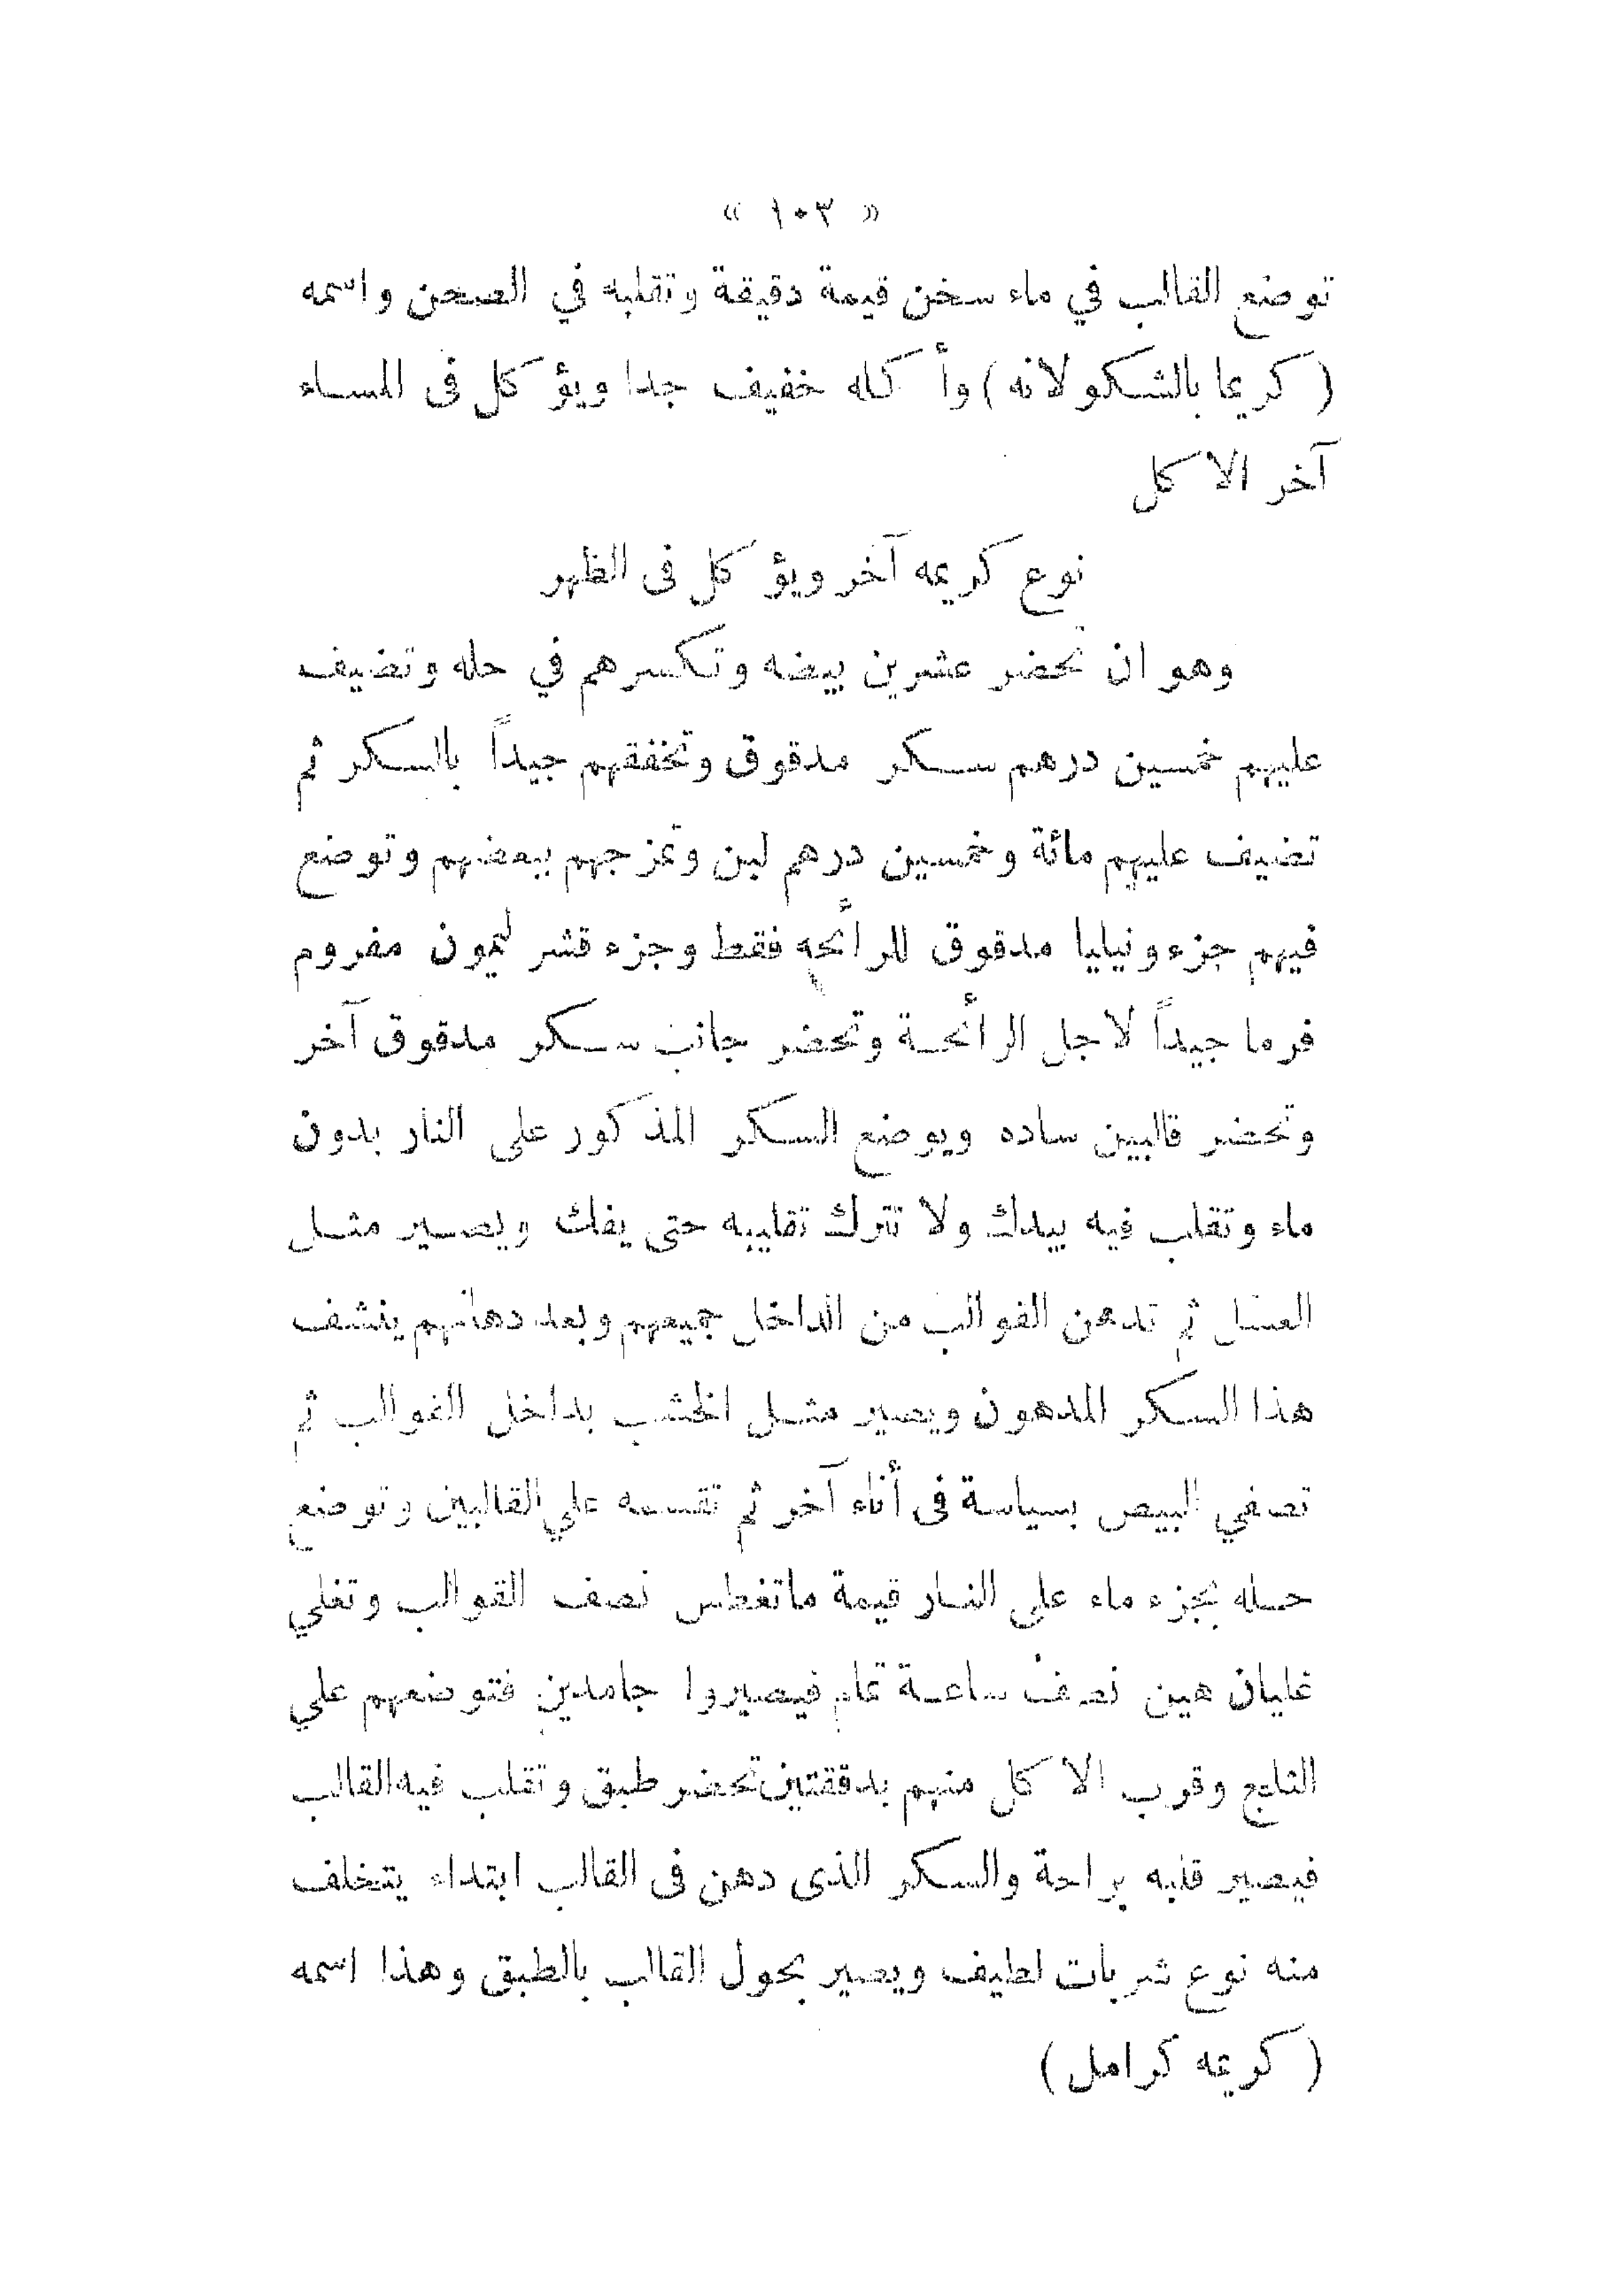 « ١٠٣ »
توضع القالب في ماء سخن قيمة دقيقة وتقلبه في الصحن واسمه
( كريما بالشكولاته ) وأكله خفيف جدا ويؤكل فى المساء
آخر الاكل
نوع كريمه آخر ويؤكل فى الظهر
وهو ان تحضر عشرين بيضه وتكسرهم في حله وتضيف
عليهم خمسين درهم سكر مدقوق وتخفقهم جيداً بالسكر ثم
تضيف عليهم مائة وخمسين درهم لبن وتمزجهم ببعضهم وتوضع
فيهم جزء ونيليا مدقوق للرأئحه فقط وجزء قشر ليمون مفروم
فرما جيداً لاجل الرأئحة وتحضر جانب سكر مدقوق آخر
وتحضر قالبين ساده ويوضع السكر المذكور على النار بدون
ماء وتقلب فيه بيدك ولا تترك تقليبه حتى يفك ويصير مثل
العسل ثم تدهن القوالب من الداخل جميعهم وبعد دهانهم ينشف
هذا السكر المدهون ويصير مثل الخشب بداخل القوالب ثم
تصفي البيص بسياسة فى أناء آخر ثم تقسمه علي القالبين وتوضع
حله بجزء ماء على النار قيمة ماتغطس نصف القوالب وتغلي
غليان هين نصف ساعة تمام فيصيروا جامدين فتوضعهم علي
الثلج وقرب الاكل منهم بدقتتين تحضر طبق وتقلب فيه القالب
فيصير قلبه براحة والسكر الذى دهن فى القالب ابتداء يتخلف
منه نوع شربات لطيف ويصير بحول القالب بالطبق وهذا اسمه
( كريمه كرامل )